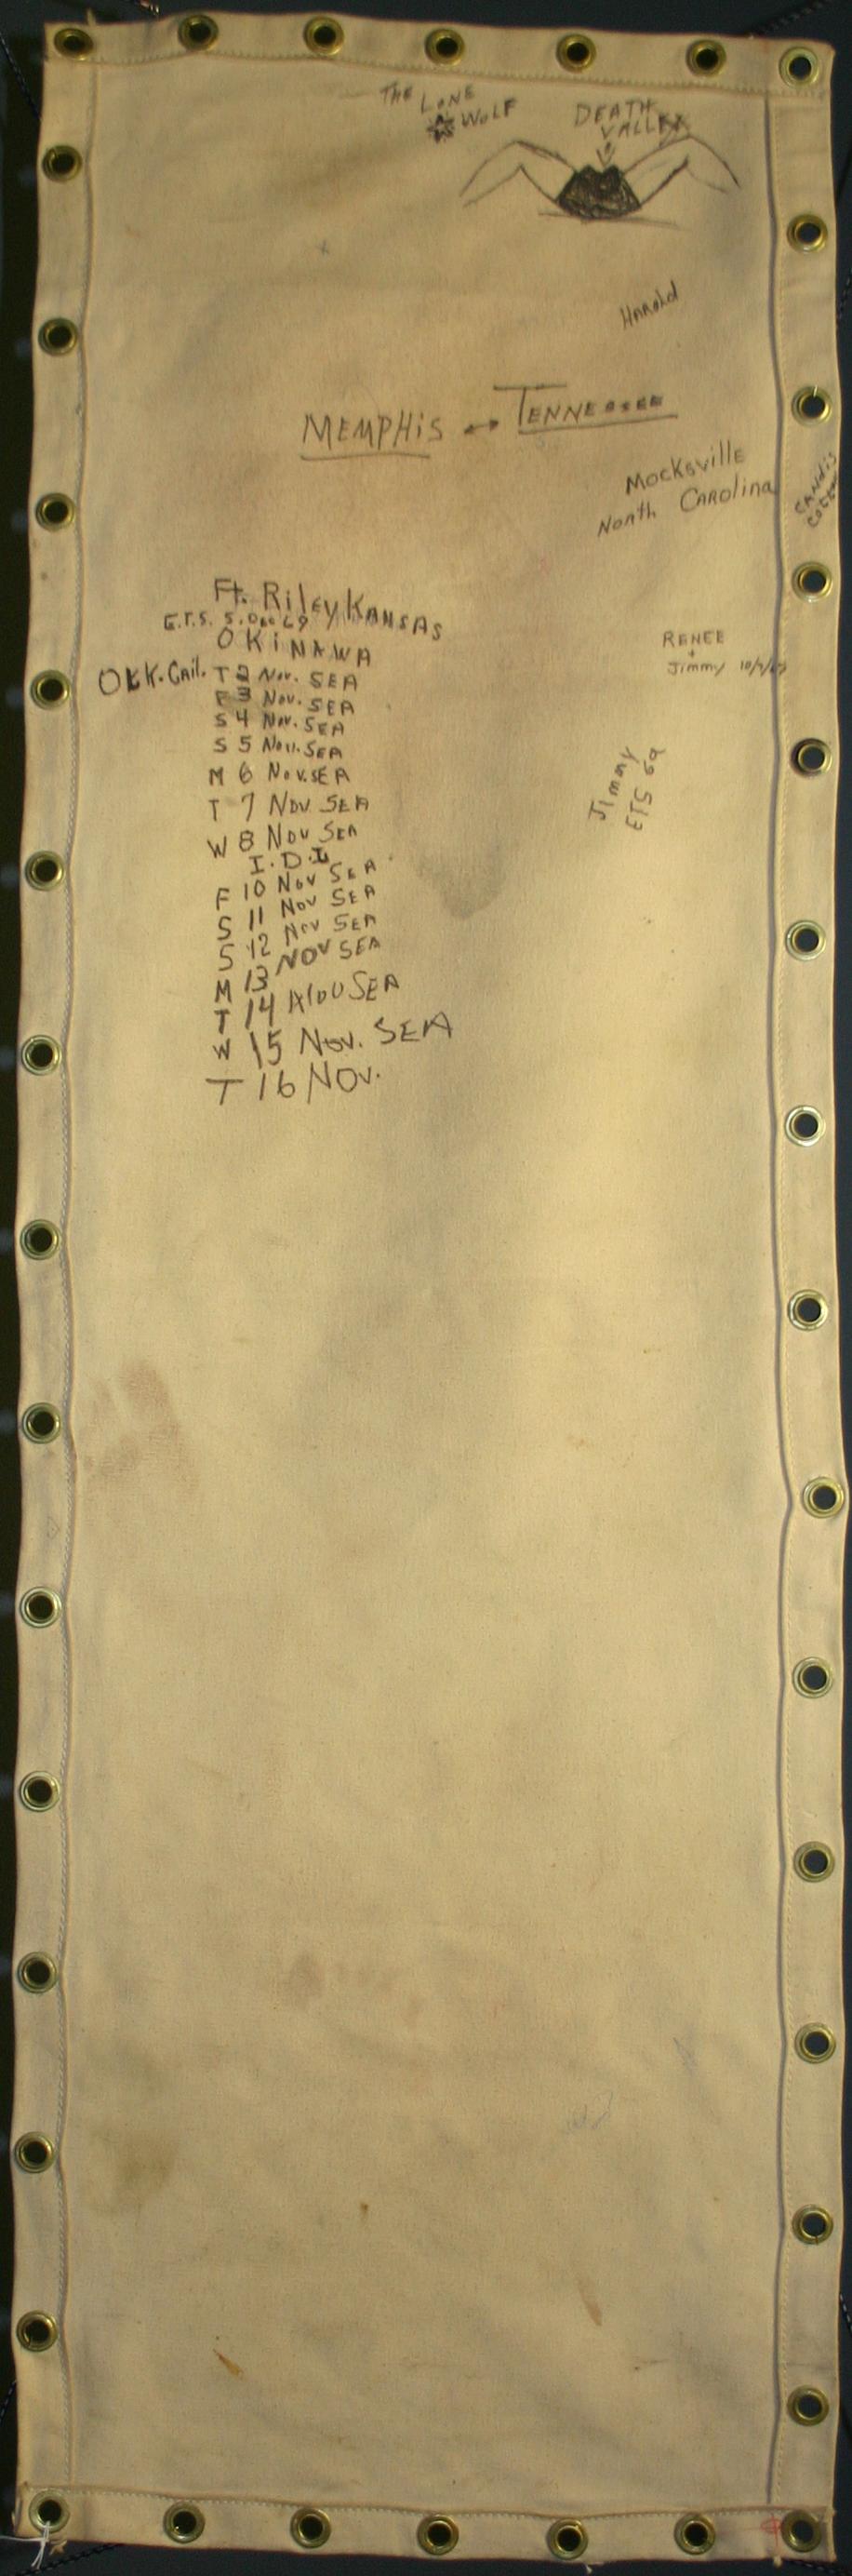 THE LONE
WOLF
DEATH
VALLEY
Harold
MEMPHIS ↔ TENNESSEE
Mocksville
North Carolina
Ft. Riley KANSAS
E.T.S. 5. Dec 69
OKINAWA
T 2 Nov. SEA
F 3 Nov. SEA
S 4 Nov. SEA
S 5 Nov. SEA
M 6 Nov. SEA
T 7 Nov SEA
W 8 Nov SEA
I.D.L
F 10 Nov SEA
S 11 Nov SEA
S 12 Nov SEA
M 13 NOV SEA
T 14 Nov SEA
W 15 Nov. SEA
T 16 Nov.
RENEE
+
Jimmy
Jimmy
ETS 69